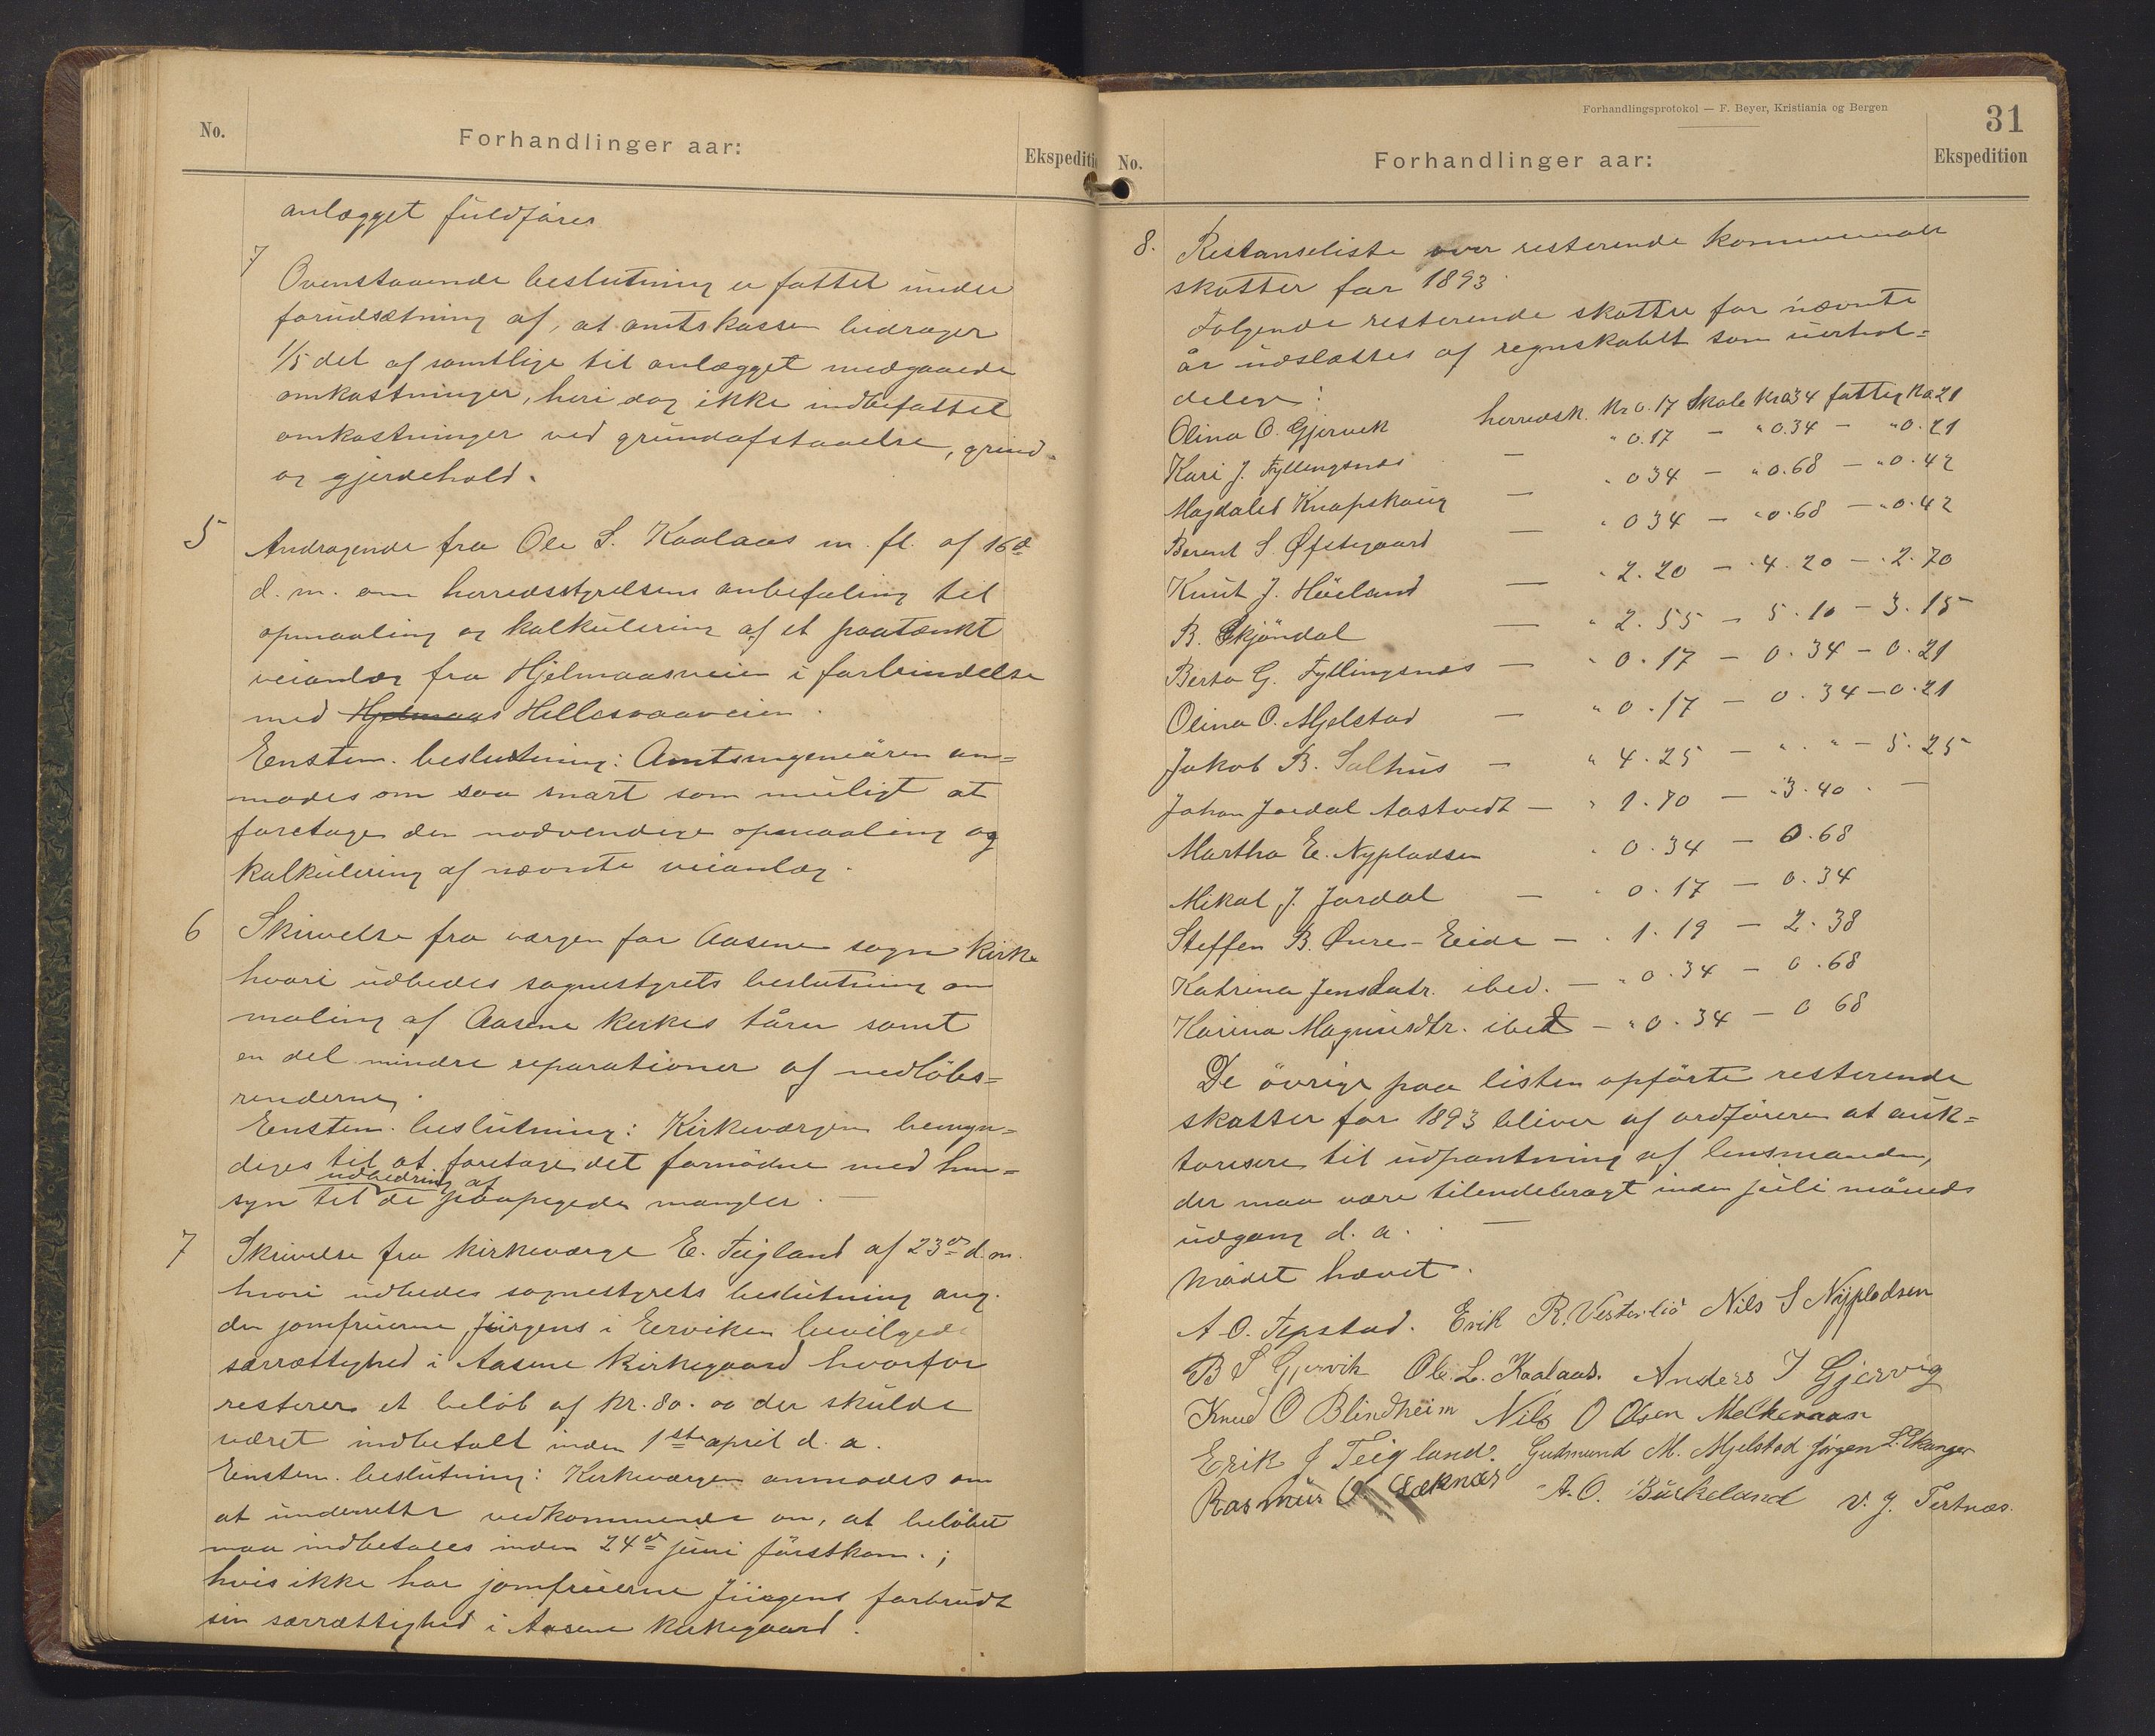 No.
Forhandlinger aar:
Ekspediti
anlægget fuldføres
7
Ovenstaaende beslutning er fattet under
forudsætning af, at amtskassen bidrager
1/5 del af samtlige til anlægget medgaaede
omkostninger, heri dog ikke indbefattet
omkostninger ved grundafstaaelse, grind-
og gjerdehold.
5 Andragende fra Ole L. Kaalaas m. fl. af 16de
d. m. om herredsstyrelsens anbefaling til
opmaaling og kalkulering af et paatænkt
veianlæg fra Hjelmaasveien i forbindelse
med Hjelmaas Hellesvaaveien.
Enstem. beslutning: Amtsingeniøren an=
modes om saa snart som muligt at
foretage den nødvendige opmaaling og
kalkulering af nævnte veianlæg.
6 Skrivelse fra værgen for Aasene sogns kirke
hvori udbedes sognestyrets beslutning om
maling af Aasene kirkes tårn samt
en del mindre reparationer af nedløbs=
renderne.
Enstem. beslutning: Kirkeværgen bemyn=
diges til at foretage det fornødne med hen=
syn til udbedring af de paapegede mangler.
7 Skrivelse fra kirkeværge E. Teigland af 23de d.m.
hvori udbedes sognestyrets beslutning ang.
den jomfruerne Jürgens i Eerviken bevilgede
særrættighed i Aasene kirkegaard hvorfor
resterer et beløb af kr. 80.00 der skulde
været indbetalt inden 1ste april d. a.
Enstem. beslutning: Kirkeværgen anmodes om
at underrette vedkommende om, at beløbet
maa indbetales inden 24de juni førstkom.;
hvis ikke har jomfruerne Jürgens forbrudt
sin særrættighed i Aasene kirkegaard.
Forhandlingsprotokol — F. Beyer, Kristiania og Bergen
31
No.
Forhandlinger aar:
Ekspedition
8. Restanseliste over resterende kommunale
skatter for 1893.
Følgende resterende skatter for nævnte
år udslættes af regnskabet som uerhol=
delige:
Olina O. Gjervik herredsk. Kr 0.17 Skole Kr 0.34 fattig Kr 0.21
Kari J. Fyllingsnæs — " 0.17 — " 0.34 — " 0.21
Magdalid Knapskoug — " 0 34 — " 0.68 — " 0.42
Berent S. Øfstegaard — " 0 34 — " 0.68 — " 0.42
Knut J. Høeland — " 2.20 — " 4.20 — " 2.70
B. Skjøndal — " 2.55 — 5.10 — 3.15
Berta G. Fyllingsnes — " 0.17 — 0.34 — 0.21
Olina O. Mjelstad — " 0.17 — 0.34 — 0.21
Jakob B. Salhus — " 4.25 — " . " — 5.25
Johan Jordal Aastvedt — " 1.70 — " 3.40 . —
Martha E. Nypladsen " 0.34 — 0.68
Mikal J. Jordal — " 0.17 — 0.34
Steffen B. Øvre-Eide — " 1.19 — 2.38
Katrina Jensdatr. ibid. — " 0.34 — 0.68
Karina Magnusdtr. ibid — " 0.34 — 0 68
De øvrige paa listen opførte resterende
skatter for 1893 bliver af ordføreren at auk=
torisere til udpantning af lensmanden,
der maa være tilendebragt inden juli måneds
udgang d. a. —
Mødet hævet.
A. O. Tepstad. Erik R. Vesterlid Nils S Nypladsen
B S Gjervik Ole L. Kaalaas. Anders J Gjervig
Knud O Blindheim Nils O Olsen Melkeraaen
Erik J Teigland. Gudmund M. Mjelstad Jørgen L. Ekanger
Rasmus O. Læknæs A. O. Birkeland V. J. Tertnæs.